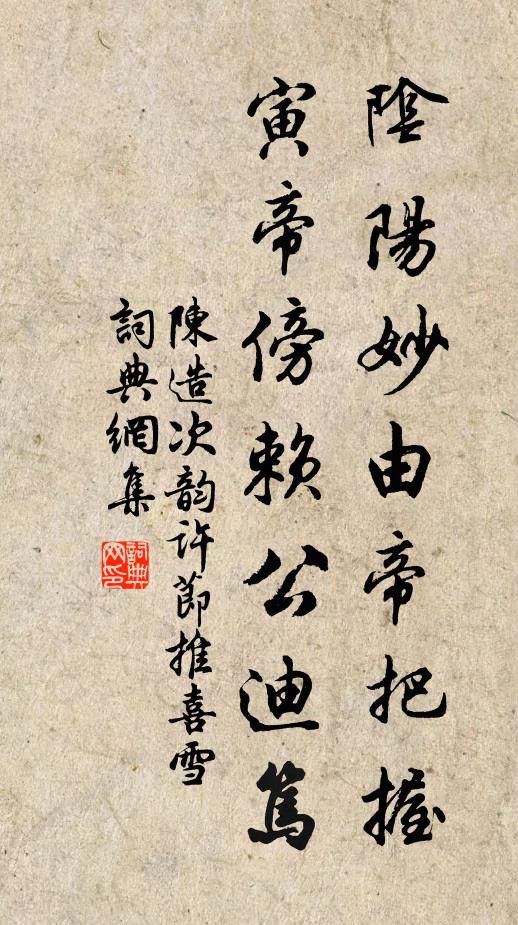 陰陽妙由帝把握
寅帝傍賴公迪篤
陳造次韵許節推喜雪
詞典網集
詞典网印